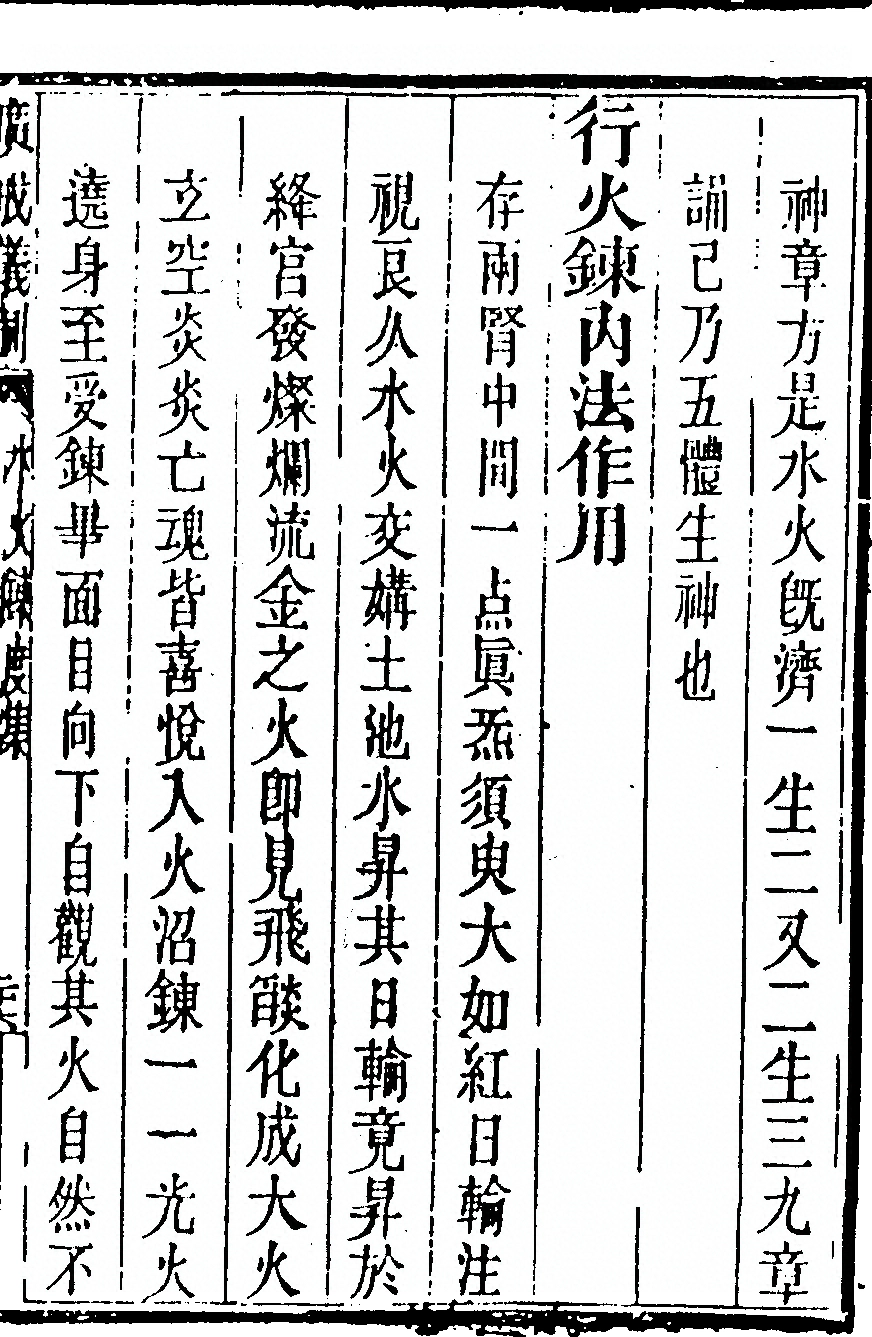 神章方是水火旣濟一生二又二生三九章
誦已乃五體生神也
行火鍊內法作用
存兩腎中間一点眞炁須臾大如紅日輪注
視良久水火交媾土池水昇其日輪竟昇於
絳宮發燦爛流金之火卽見飛燄化成大火
立空炎炎亡魂皆喜悅入火沼鍊一一光火
遶身至受鍊畢面目向下自觀其火自然不
廣成儀制 水火鍊度集